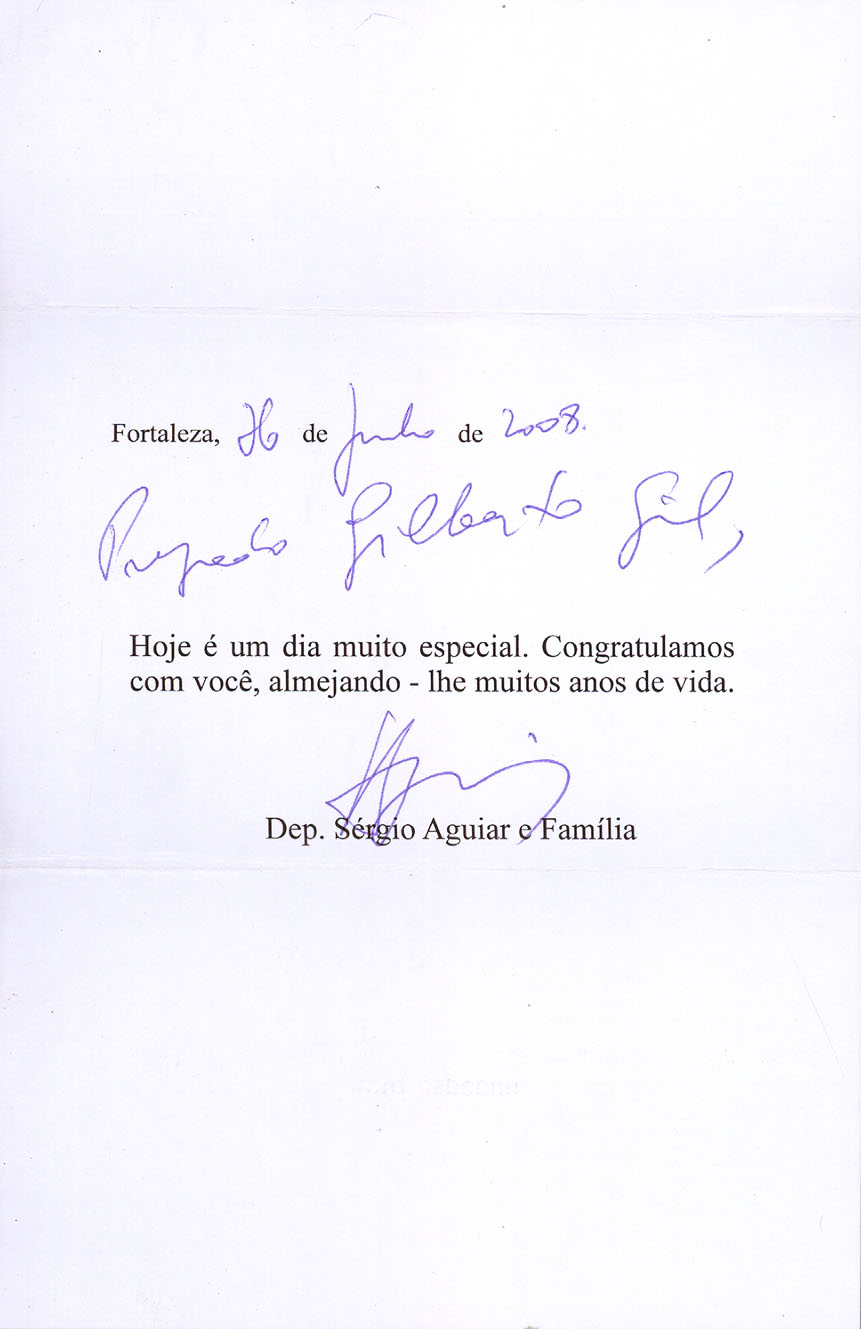 Fortaleza, 26 de Junho de 2008.
Prezado Gilberto Gil,
Hoje é um dia muito especial. Congratulamos
com você, almejando - lhe muitos anos de vida.
Dep. Sérgio Aguiar e Família